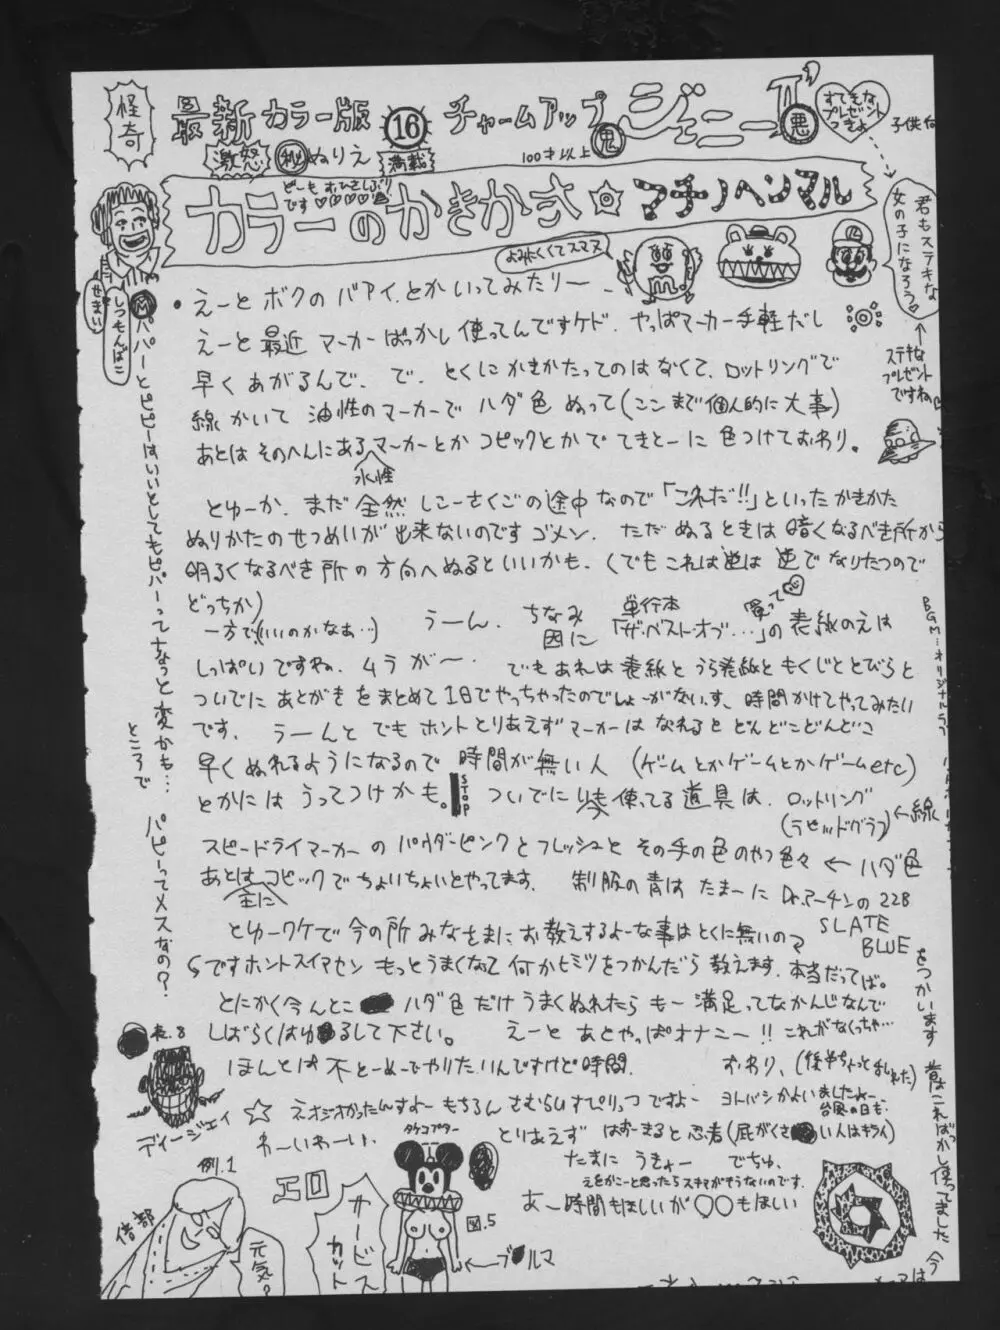 怪奇
最新カラー版 ⑯ チャームアップ 鬼 ジェニー 悪
激怒 ㊙ ぬりえ 満載
100才以上
すてきな
プレゼント
子供
どーも おひさしぶり
です♡♡♡♡
カラーのかきかた マチノヘンマル
君もステキな
女の子になろう♡
ステキな
プレゼント
ですね
よみにくくてスマヌ
しつもんばこ
せまい
・えーと ボクの バアイ、とか いってみたりー
えーと 最近 マーカーばっかし 使ってんですケド、やっぱマーカー手軽だし
早く あがるんで、で、とくに かきかたってのは なくて、ロットリングで
線 かいて 油性のマーカーで ハダ色 ぬって(ここまで個人的に大事)
あとは そのへんにある マーカーとか コピックとかで てきとーに 色つけて おわり。
水性
とゆーか、まだ 全然 しこーさくごの途中 なので「これだ!!」といった かきかた
ぬりかたの せつめいが 出来ないのです ゴメン. ただ ぬるときは 暗くなるべき所から
明るくなるべき所の方向へ ぬるといいかも、(でも これは逆は 逆で なりたつので
どっちか)
一方で(いいのかなあ…) うーん. ちなみ 因に 単行本「ザ・ベスト・オブ…」買って♡の表紙のえは
しっぱいですね、ムラが〜. でもあれは表紙と うら表紙と もくじと とびらと
ついでに あとがき をまとめて1日でやっちゃったのでしょーがないっす、時間かけてやってみたい
です、うーんと でも ホント とりあえず マーカーは なれると どんどこどんどこ
早く ぬれるようになるので 時間が無い人 (ゲームとかゲームとかゲームetc)
とかには うってつけかも。STOP ついでに 使ってる道具は、ロットリング
(ラピッドグラフ)←線
スピードライマーカーの パウダーピンクと フレッシュと その手の色のやつ色々 ← ハダ色
あとは コピックで ちょいちょいとやってます. 制服の青は たまーに Dr.アーチンの 228
主に
SLATE
BLUE
をつかいます
とゆーワケで 今の所 みなさまに お教えするよーな事は とくに無いの
ですホントスイアセン もっとうまくなって 何かヒミツをつかんだら 教えます. 本当だってば。
とにかく今んとこ ハダ色 だけ うまくぬれたら もー 満足ってなかんじなんで
しばらくはゆるして下さい。 えーと あとやっぱオナニー!! これがなくっちゃ…
ほんとは 不とーめーで やりたいんですけど 時間. おわり、(後半ちょっと
ディージェイ ☆ ネオジオかったんすよー もちろん さむらいすぴりっつ ですよー ヨドバシかよいましたよー
台風の日も.
わーいわーい. とりあえず はおーまると 忍者(屁がくさい人はキライ)
たまに うきょー でちゅ.
えをかこーと思ったら スキマがそうないのです.
あ〜時間もほしいが 〇〇もほしい
パパーとピピーはいいとしてもピパーってなっと変かも…
ところで パピーってメスなの?
BGM…オリジナルラブ
昔はこればっかし使ってました 今
タケコプター
例.1
倍部
元気?
エロ
サービス
カット
図.5
ブルマ